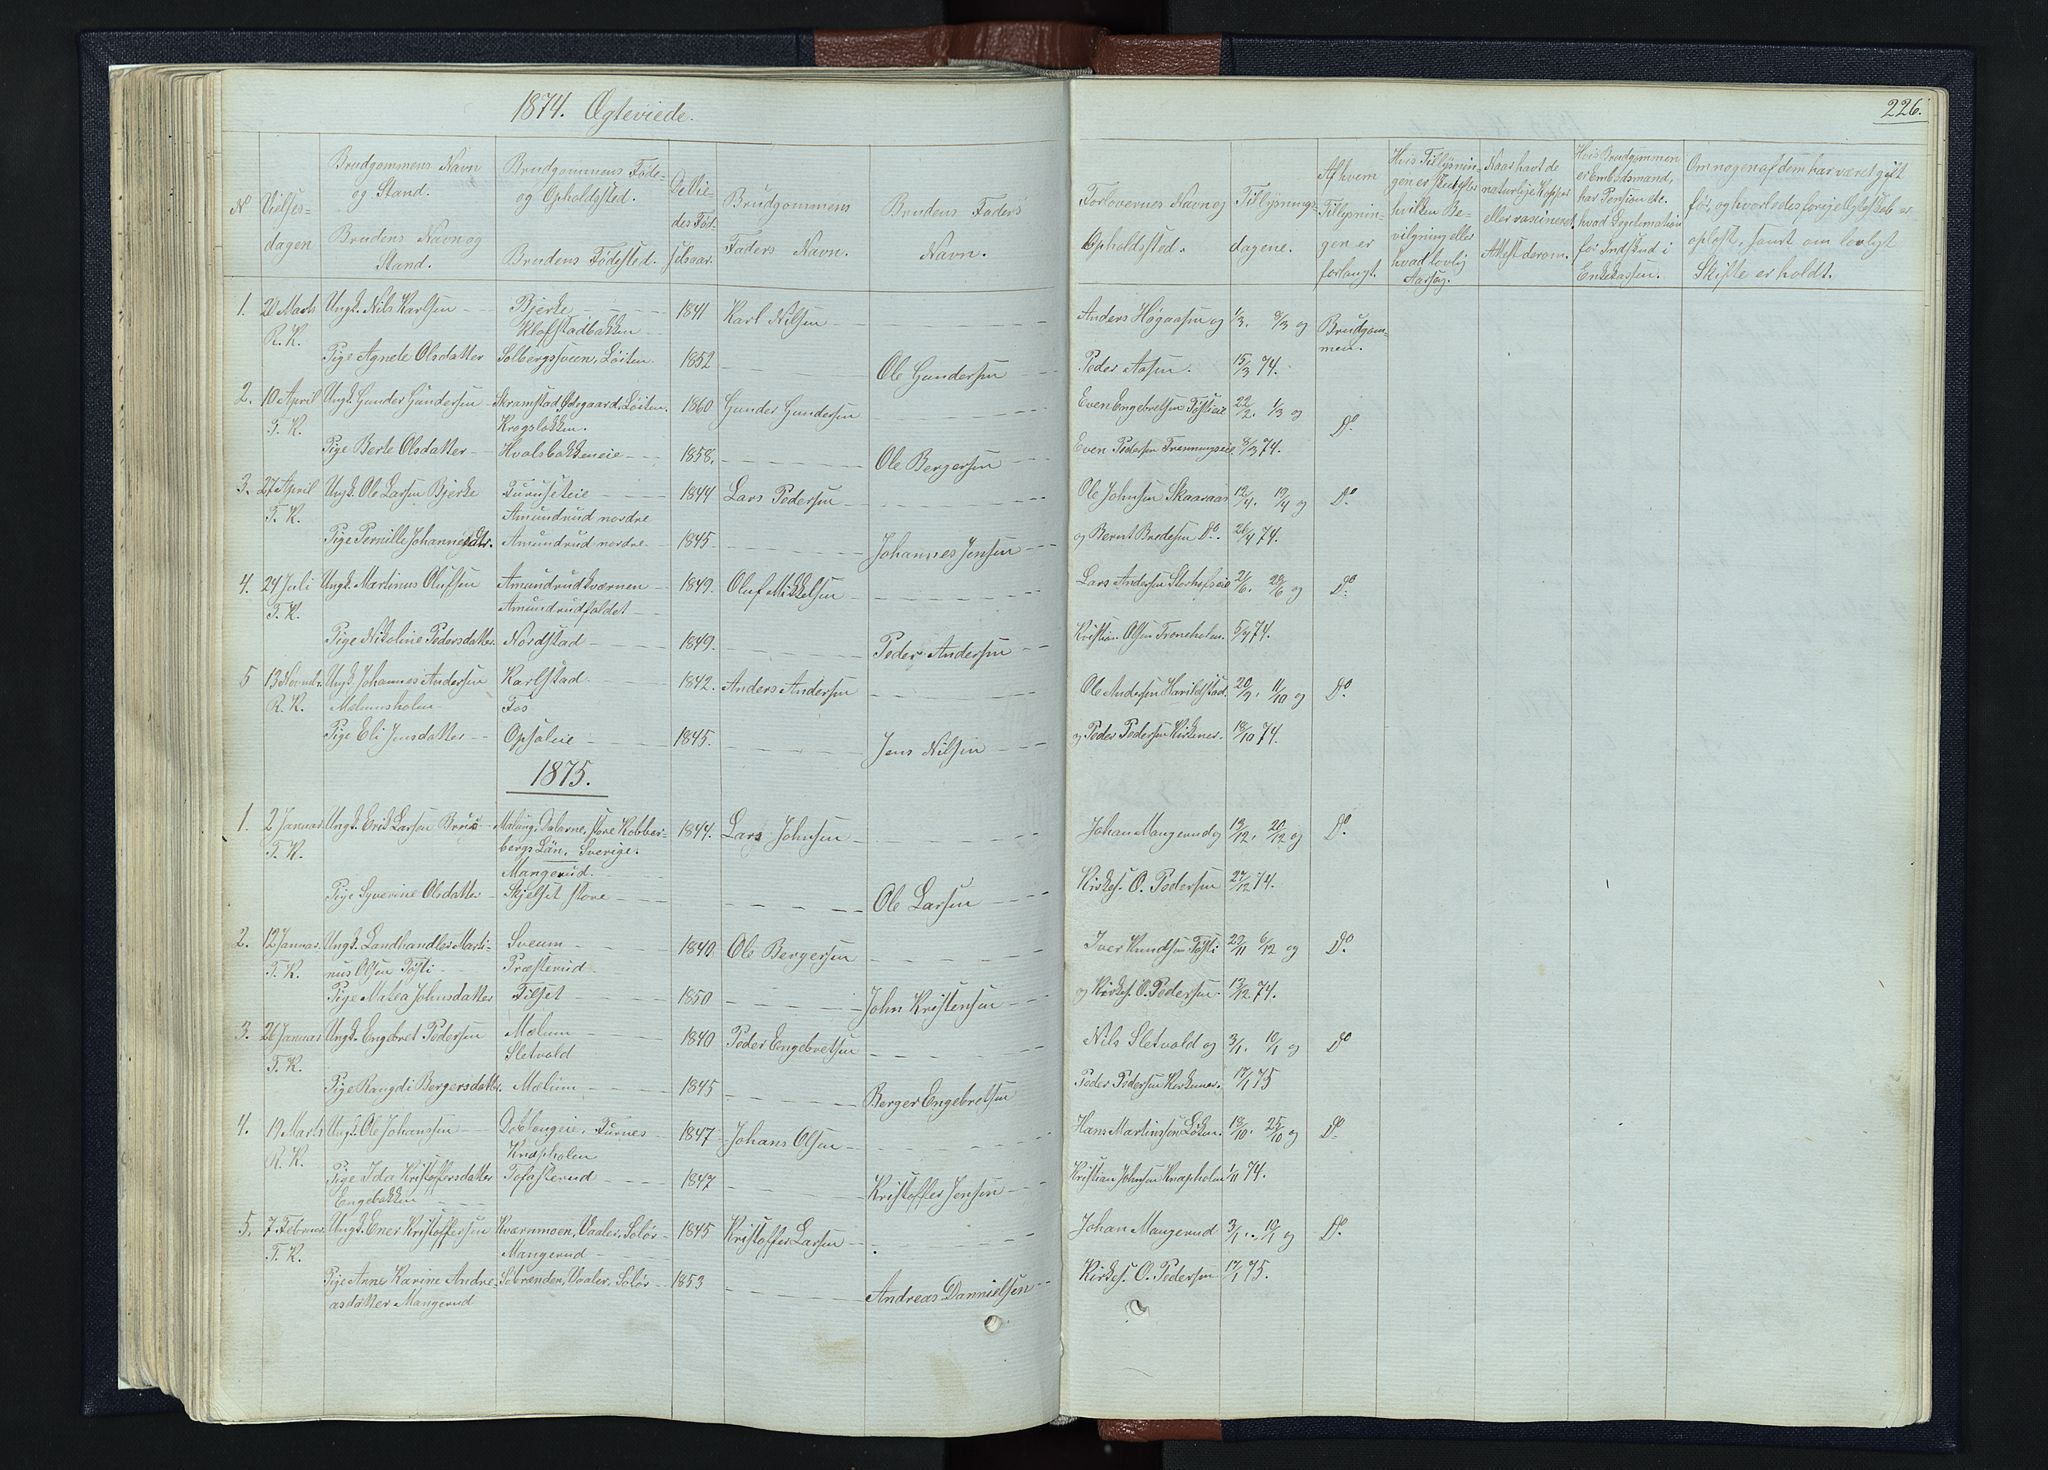 1874. Ægteviede.
226.
N
Vielses-
dagen
Brudgommens Navn
og Stand.
Brudens Navn og
Stand.
Brudgommens Føde-
og Opholdssted.
Brudens Fødested.
De Vie-
des Fød-
selsaar.
Brudgommens
Faders Navn.
Brudens Faders
Navn.
Forlovernes Navn og
Opholdssted.
Tillysnings-
dagene.
Af hvem
Tillysnin-
gen er
forlangt.
Hvis Tillysnin-
gen er
hvilken Be-
vilgning eller
hvad lovlig
Aarsag.
Naar havt de
naturlige Kopper
eller vaccineret.
Attest derom.
Hvis Brudgommen
er Embedsmand,
har Pension &c.
hvad Legitimation
for Indskud i
Enkekassen.
Om nogen af dem har været gift
før, og hvorledes forrige Ægteskab er
opløst, samt om lovligt
Skifte er holdt.
1. Marts Ungk. Nils Karlsen Bjerke 1841 Karl Nilsen Anders Høgaasen og 1/3. 8/3 og Brudgom-
R. K. Klofstadbakken men.
Pige Agnete Olsdatter Solbergssveen, Løiten 1852 Ole Gundersen Peder Aasen. 15/3 74.
2. 10 April Ungk. Gunder Gundersen Skramstad Ødegaard, Løiten. 1860 Gunder Gundersen Even Engebretsen 22/2. 1/3 og Do.
T. K. Krogsløkken.
Pige Berte Olsdatter Hvalsbakkeneie 1858. Ole Bergersen Even Pedersen 8/3 74.
3. 27 April Ungk. Ole Larsen Bjerke Furuseteie 1844 Lars Pedersen Ole Johnsen Skaaraas 12/4. 19/4 og Do.
T. K. Amundrud nordre
Pige Pernille Johannesdtr. Amundrud nordre 1845. Johannes Jensen og Bernt Bredesen Do. 26/4 74.
4. 24 Juli Ungk. Martinus Olufsen Amundrudkværnen 1849. Oluf Mikkelsen Lars Andersen 21/6. 28/6 og Do.
T. K. Amundrudfaldet
Pige Nikoline Pedersdatter Nordstad 1849. Peder Andersen Kristian Olsen Troneholen. 5/7 74.
5 13 Novmbr. Ungk. Johannes Andersen Karlstad 1842. Anders Andersen Ole Andersen 11/10 og Do.
R. K. Mælumsholen Fos
Pige Eli Jensdatter Opsaleie 1845. Jens Nilsen og Peder Pedersen Kirkener. 18/10 74.
1875.
1. 2 Januar Ungk. Erik Larsen Malung, Dalarne, store Kobber- 1844. Lars Johnsen Johan Mangerud og 13/12. 20/12 og Do.
T. K. bergs Län. Sverige.
Mangerud.
Pige Syverine Olsdatter Skjelset store Ole Larsen Kirkes. O. Pedersen 27/12 74.
2. 12 Januar. Ungk. Landhandler Marti- Sveum 1840. Ole Bergersen Iver Knudsen Tøsti 6/12 og Do.
T. K. nus Olsen Tøsti Præsterud
Pige Matea Johnsdatter Filset 1850 John Kristensen og Kirkes. O. Pedersen. 13/12 74.
3. 26 Januar Ungk. Engebret Pedersen Mælum 1840 Peder Engebretsen Nils Sletvold og 3/1. 10/1 og Do.
T. K. Sletvold
Pige Rangdi Bergersdatter. Mælum 1845 Berger Engebretsen Peder Pedersen Kirkener. 17/1 75
4. 19 Marts Ungk. Ole Johanssen Doblougeie, Furnes 1847 Johans Olsen Hans Martinssen Løken. 18/10. 25/10 og Do.
R. K. Knæpholen
Pige Ida Kristoffersdatter Tofasterud 1847 Kristoffer Jensen Kristian Johnsen Knæpholen 1/11 74.
Engebakken
5. 7 Februar Ungk. Ener Kristoffersen Kværnmoen, Vaaler, Solør 1845 Kristoffer Larsen Johan Mangerud 3/1. 10/1 og Do.
T. K. Mangerud
Pige Anne Karine Andre- Sobrænden, Vaaler, Solør 1853 Andreas Dannielsen Kirkes. O. Pedersen 17/1 75.
asdatter Mangerud